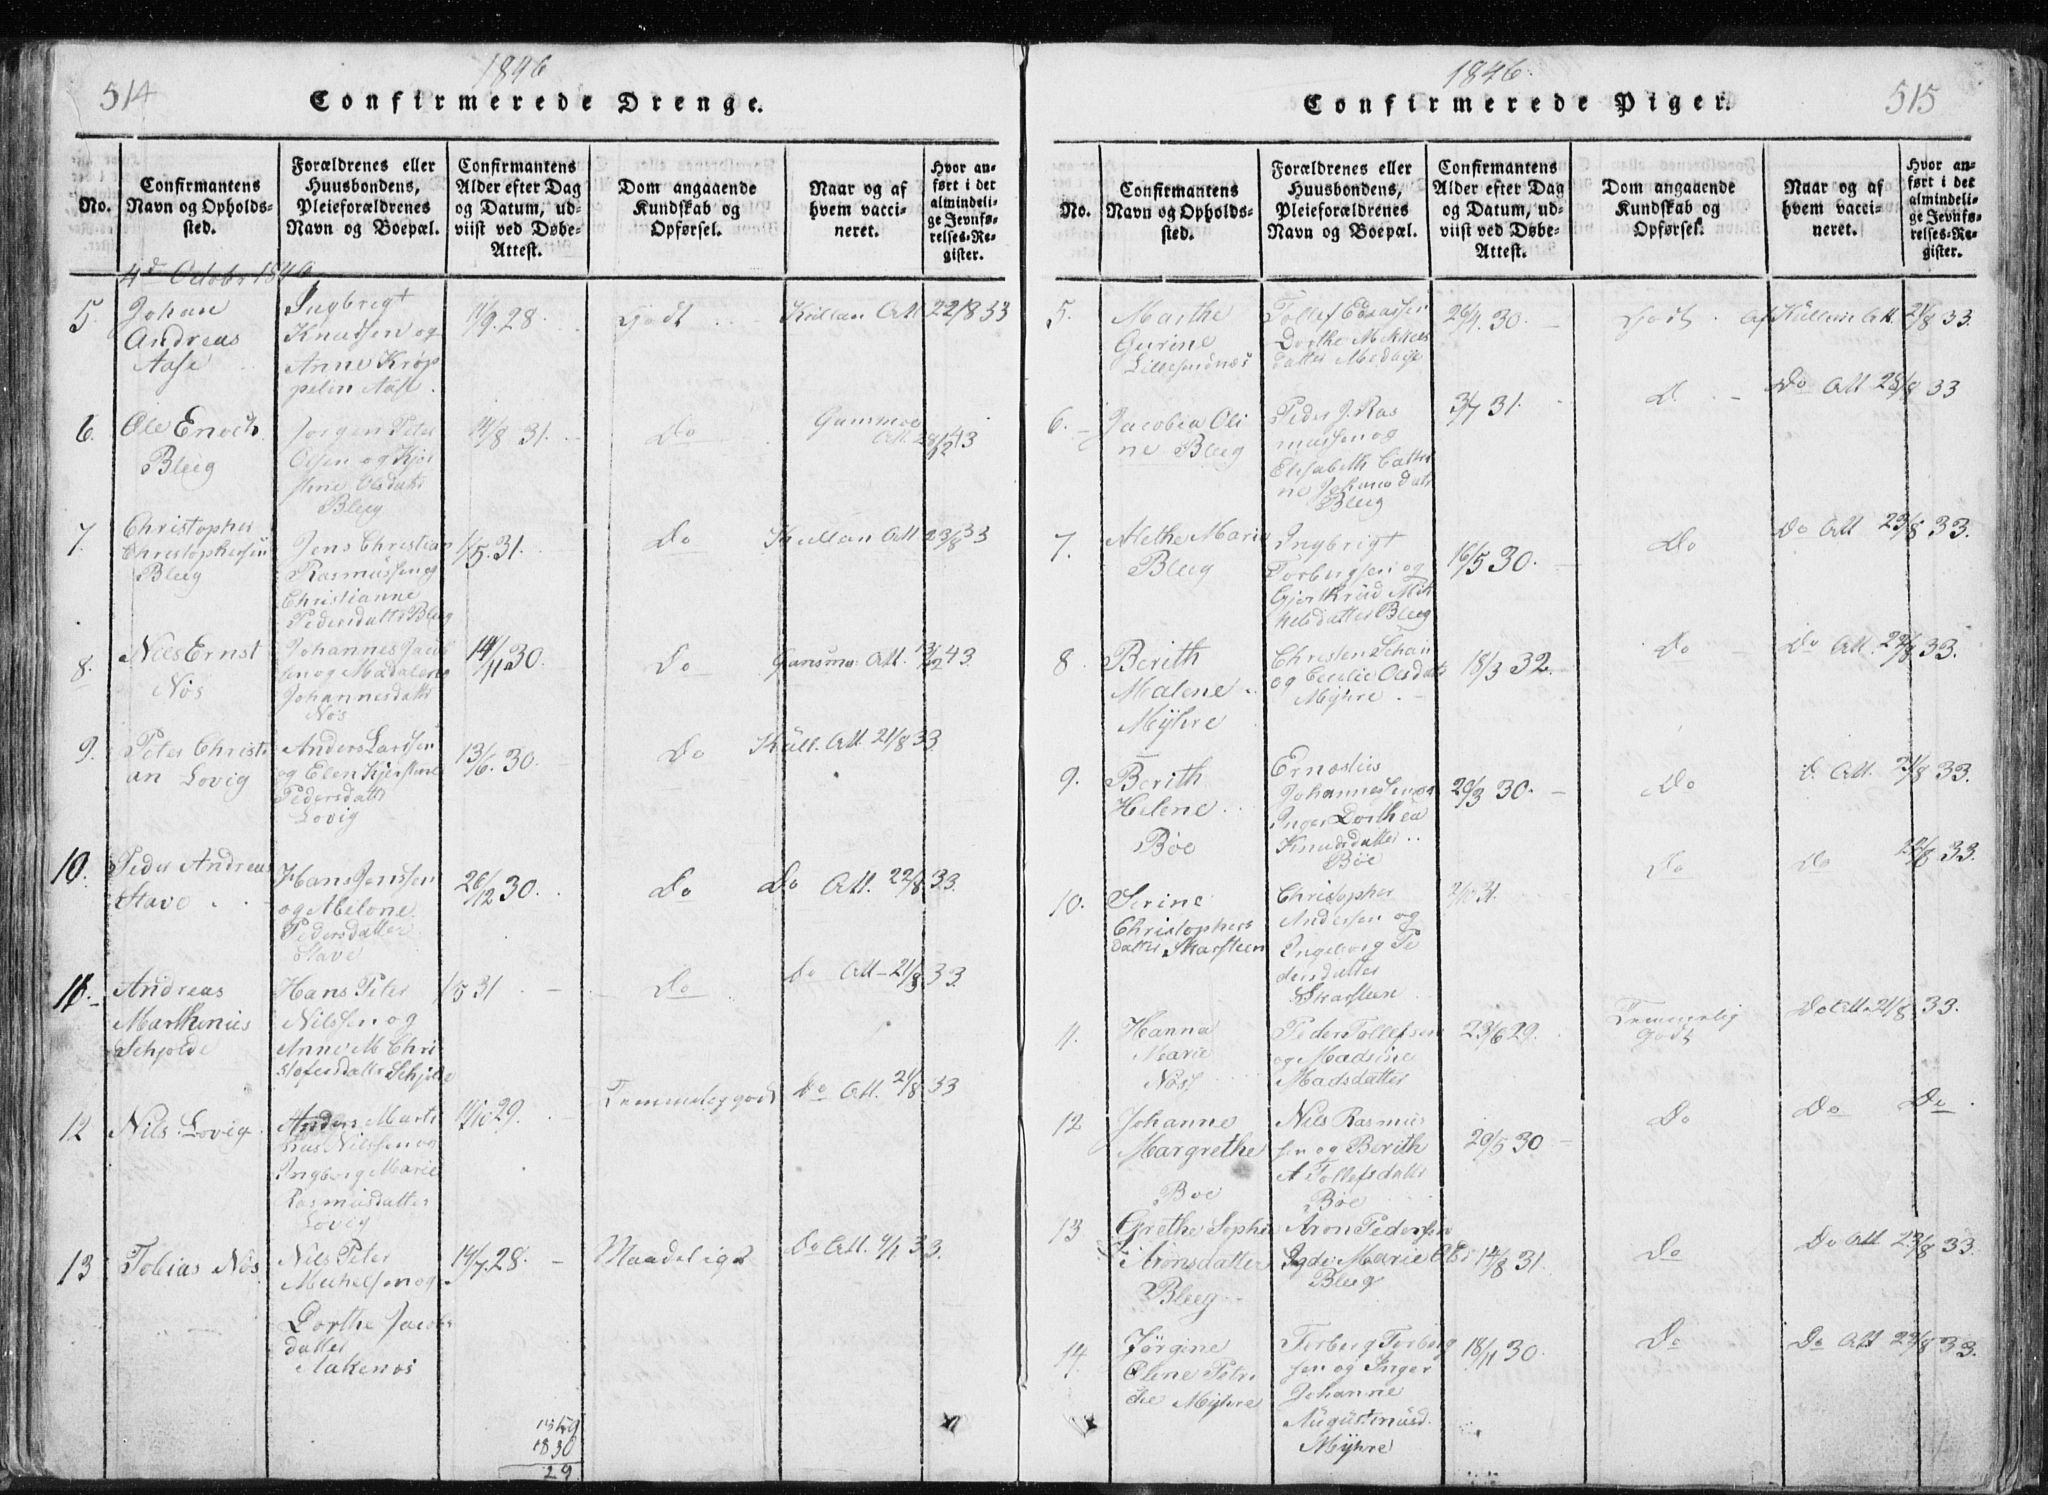 514
1846
Confirmerede Drenge.
No.
Confirmantens
Navn og Opholds-
sted.
Forældrenes eller
Huusbondens,
Pleieforældrenes
Navn og Boepæl.
Confirmantens
Alder efter Dag
og Datum, ud-
viist ved Døbe-
Attest.
Dom angaaende
Kundskab og
Opførsel.
Naar og af
hvem vacci-
neret.
Hvor an-
ført i det
almindeli-
ge Jevnfø-
relses-Re-
gister.
4d Octobr 1846
5
Johan
Andreas
Aase
Ingbrigt
Knutsen og
Anne Krøp
pelin Aase.
11/9. 28.
Godt
Küllan Att. 22/8 33
6.
Ole Enoch
Bleeg
Jørgen Peter
Olsen og Kjer
stine Olsdatter
Bleeg
14/8 31.
Do
Att. 28/12 43
7.
Christopher
Christophersen
Bleeg
Jens Christian
Rasmussen og
Christianne
Pedersdatter Bleeg
1/5. 31.
Do
Küllan Att 23/8 33
8.
Niels Ernst
Nøs
Johannes Jacob
sen og Madalene
Johannesdatter
Nøs
14/11 30.
Do
Gunsmo Att. 13/12 43.
9.
Peter Christi
an Lovig
Anders Larssen
og Elen Kjerstine
Pedersdatter
Lovig
13/6. 30.
Do
Küll. Att 21/8 33.
10.
Peder Andreas
Stave
Hans Jenssen
og Abelone
Pedersdatter
Stave
26/12 30.
Do
Do Att. 22/8 33.
11.
Andreas
Marthinus
Schjolde
Hans Peter
Nilssen og
Anne M. Chri
stofersdatter Schjolde
1/5 31
Do
Do Att - 21/8 33.
12
Nils Lovig
Anders Marti
nus Nilssen og
Ingborg Marie
Rasmusdatter
Lovig
11/10 29.
Temmelig godt
Do Att. 21/8 33
13
Tobias Nøs
Nils Peter
Michelsen og
Dorthe Jacobs
datter
Aakenøs
14/7. 28.
Maadeligt
Do Att. 4/1 33.
1830
29
515
1846.
Confirmerede Piger.
No.
Confirmantens
Navn og Opholds-
sted.
Forældrenes eller
Huusbondens,
Pleieforældrenes
Navn og Boepæl.
Confirmantens
Alder efter Dag
og Datum, ud-
viist ved Døbe-
Attest.
Dom angaaende
Kundskab og
Opførsel.
Naar og af
hvem vacci-
neret.
Hvor an-
ført i det
almindeli-
ge Jevnfø-
relses-Re-
gister.
5.
Marthe
Gurine
Tollef
Dorthe Mikkels
datter
26/4. 30.
Godt.
af Küllan Att. 21/8 33.
6.
Jacobia Oli
ne Bleeg
Peder J. Ras
mussen og
Elisabeth Cathri
ne
Bleeg
3/7 31.
D.
Do Att 28/8 33
7.
Alethe Marie
Bleeg
Ingbrigt
Torbergsen og
Gjertrud Mik
kelsdatter Bleeg
16/5 30.
Do
Do Att 23/8 33.
8
Berith
Malene
Myhre
Christen Johan
og Cecilie Olsdatter
Myhre
18/3 32.
Do
Do Att. 22/8 33.
9.
Berith
Helene
Böe
Ernestus
Johannessen og
Inger Dorthea
Knudsdatter
Böe
29/3 30.
Do
D. Att. 21/8 33.
10.
Serine
Christophers
datter Skarsteen
Christopher
Andersen og
Ingeborg Pe
dersdatter
Skarsteen
2/10 31.
Do
Do
22/8 33.
11.
Hanna
Marie
Nøss
Peder Tollefsen
og Madsine
Madsdatter
23/6 29.
Temmelig
Godt
Do Att. 21/8 33.
12
Johanne
Margrethe
Böe
Nils Rasmus
sen og Berith
A Tollefsdatter
Böe
29/5 30
Do
Do
Do
13
Grethe Sophie
Aronsdatter
Bleeg
Aron Pedersen
Marie
Bleeg
14/8 31.
Do
Do Att 23/8 33.
14
Jörgine
Elene Petri
cke Myhre
Torberg Torberg
sen og Inger
Johanne
Augustinusd.
Myhre
18/11 30.
Do
Do Att 22/8 33.